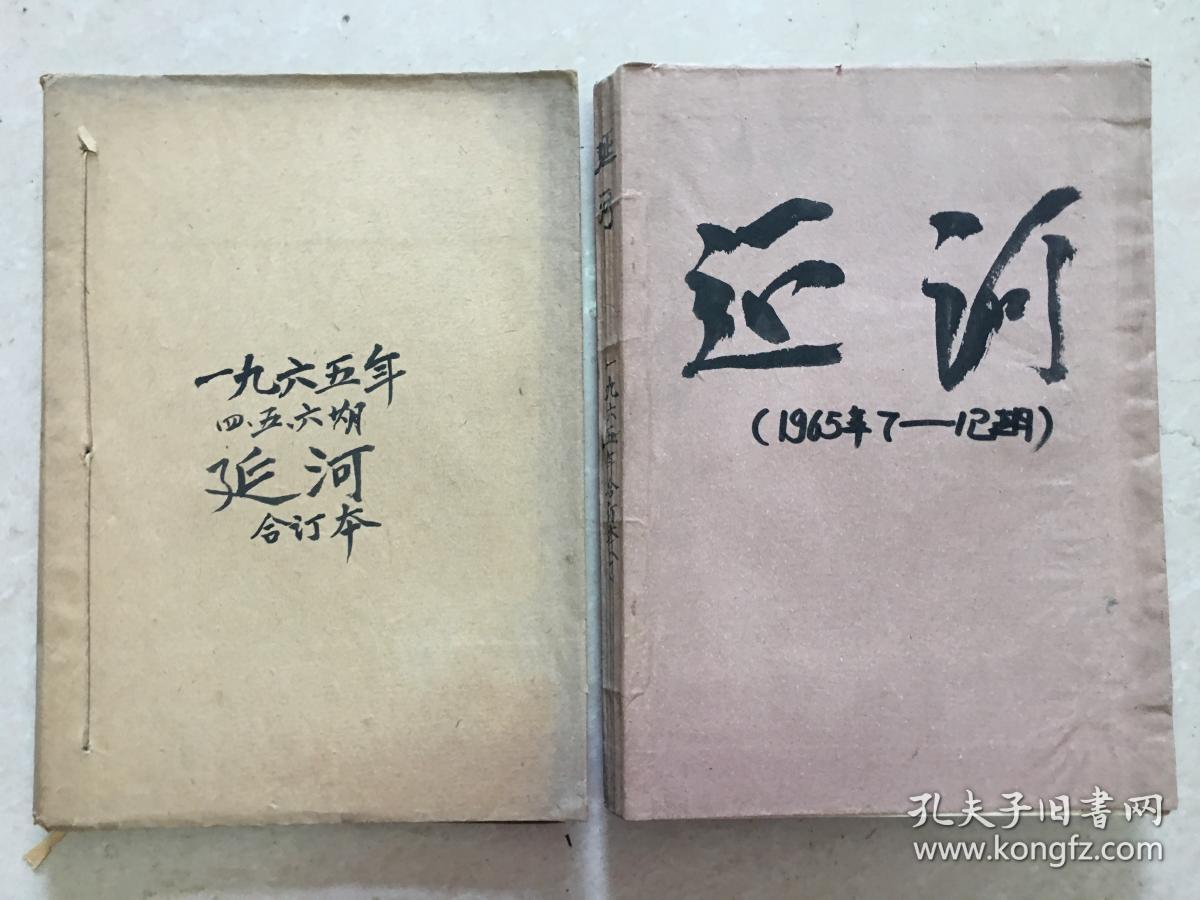 一九六五年
四、五、六期
延河
合订本
延河
一九六五年合订本
延河
(1965年7—12期)
孔夫子旧书网
www.kongfz.com